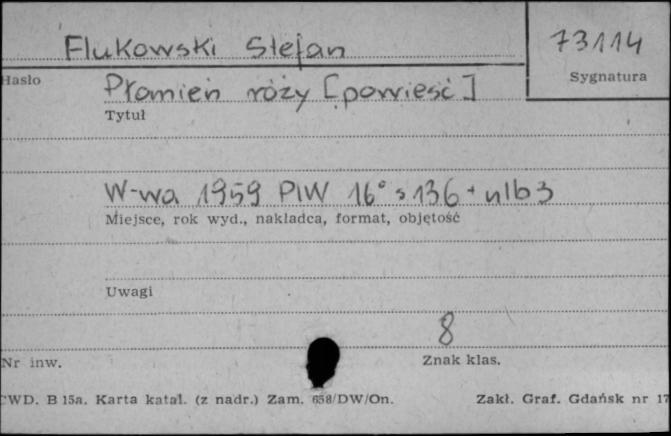 Flukowski Stefan
73114
Hasło
Sygnatura
Płomień róży [powieść]
Tytuł
W-wa 1959 PIW 16° s 136 + nlb 3
Miejsce, rok wyd., nakładca, format, objętość
Uwagi
8
Nr inw.
Znak klas.
CWD. B 15a. Karta katal. (z nadr.) Zam. 658/DW/On.
Zakł. Graf. Gdańsk nr 17